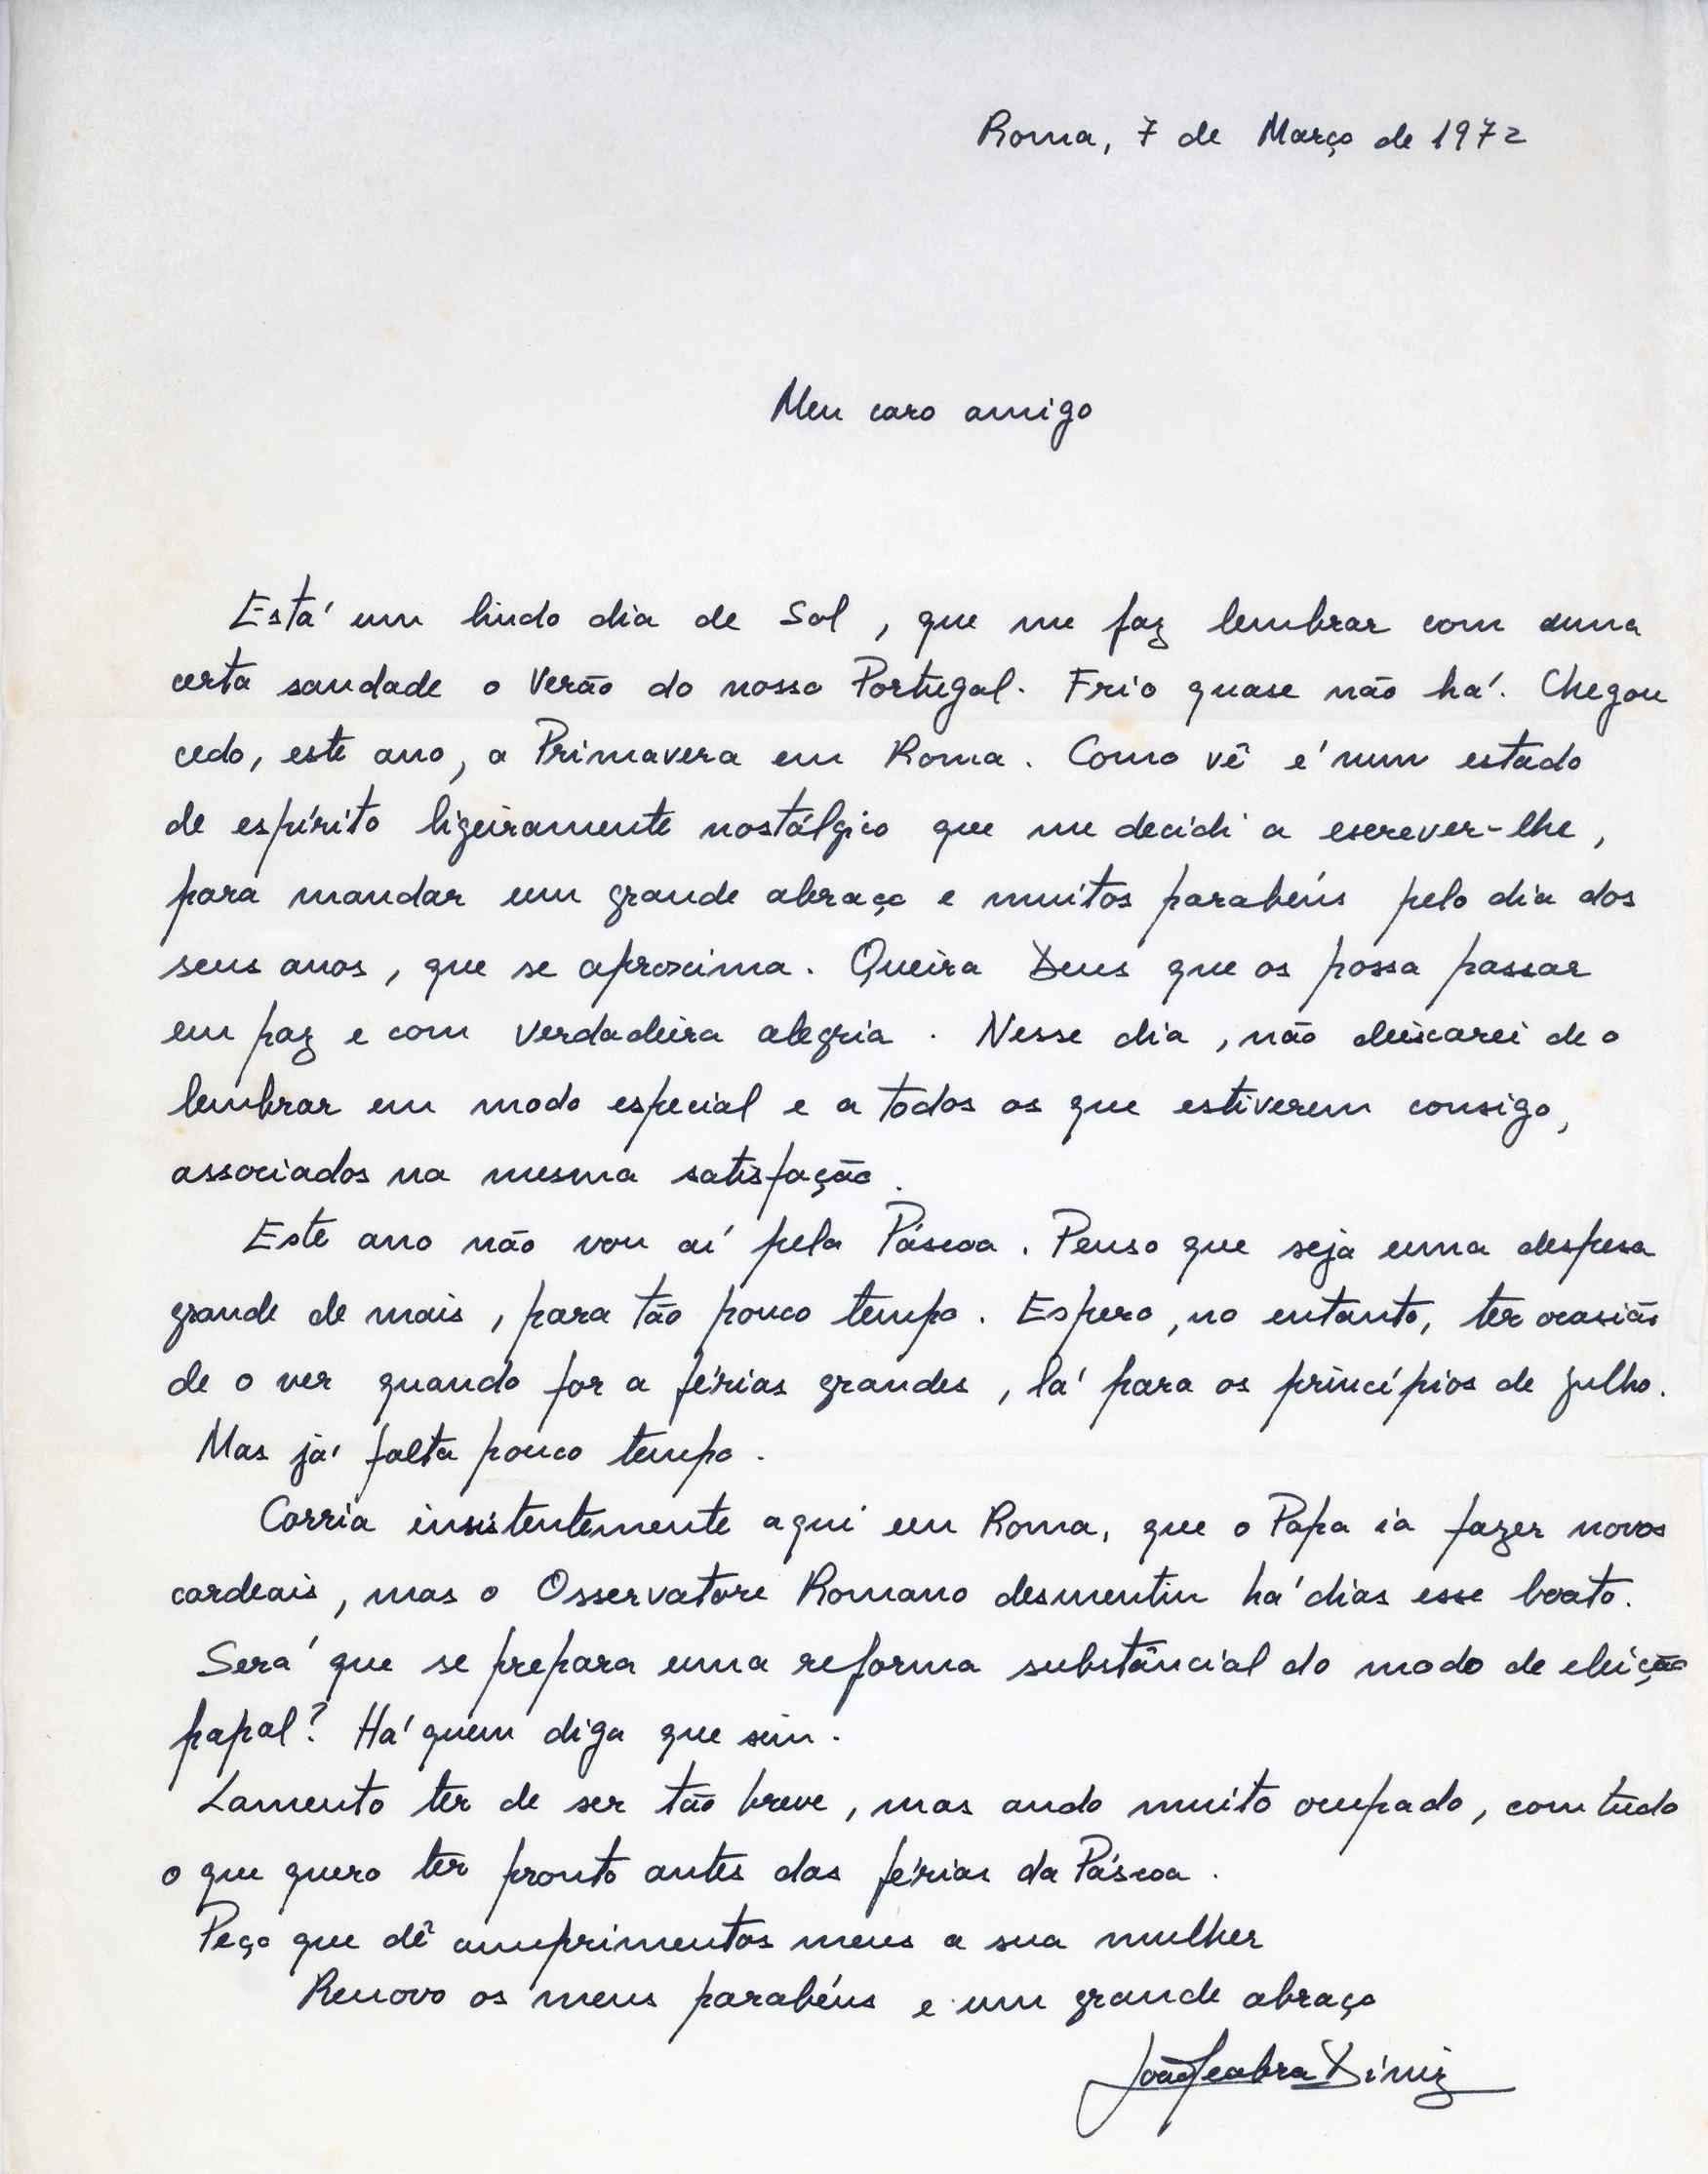 Roma, 7 de Março de 1972
Meu caro amigo
Está um lindo dia de Sol, que me faz lembrar com uma
certa saudade o Verão do nosso Portugal. Frio quase não há. Chegou
cedo, este ano, a Primavera em Roma. Como vê é num estado
de espírito ligeiramente nostálgico que me decidi a escrever-lhe,
para mandar um grande abraço e muitos parabéns pelo dia dos
seus anos, que se aproxima. Queira Deus que os possa passar
em paz e com verdadeira alegria. Nesse dia, não deixarei de o
lembrar em modo especial e a todos os que estiverem consigo,
associados na mesma satisfação.
Este ano não vou aí pela Páscoa. Penso que seja uma despesa
grande de mais, para tão pouco tempo. Espero, no entanto, ter ocasião
de o ver quando for a férias grandes, lá para os princípios de julho.
Mas já falta pouco tempo.
Corria insistentemente aqui em Roma, que o Papa ia fazer novos
cardeais, mas o Osservatore Romano desmentiu há dias esse boato.
Será que se prepara uma reforma substâncial do modo de eleição
papal? Há quem diga que sim.
Lamento ter de ser tão breve, mas ando muito ocupado, com tudo
o que quero ter pronto antes das férias da Páscoa.
Peço que dê cumprimentos meus a sua mulher
Renovo os meus parabéns e um grande abraço
João Seabra Diniz